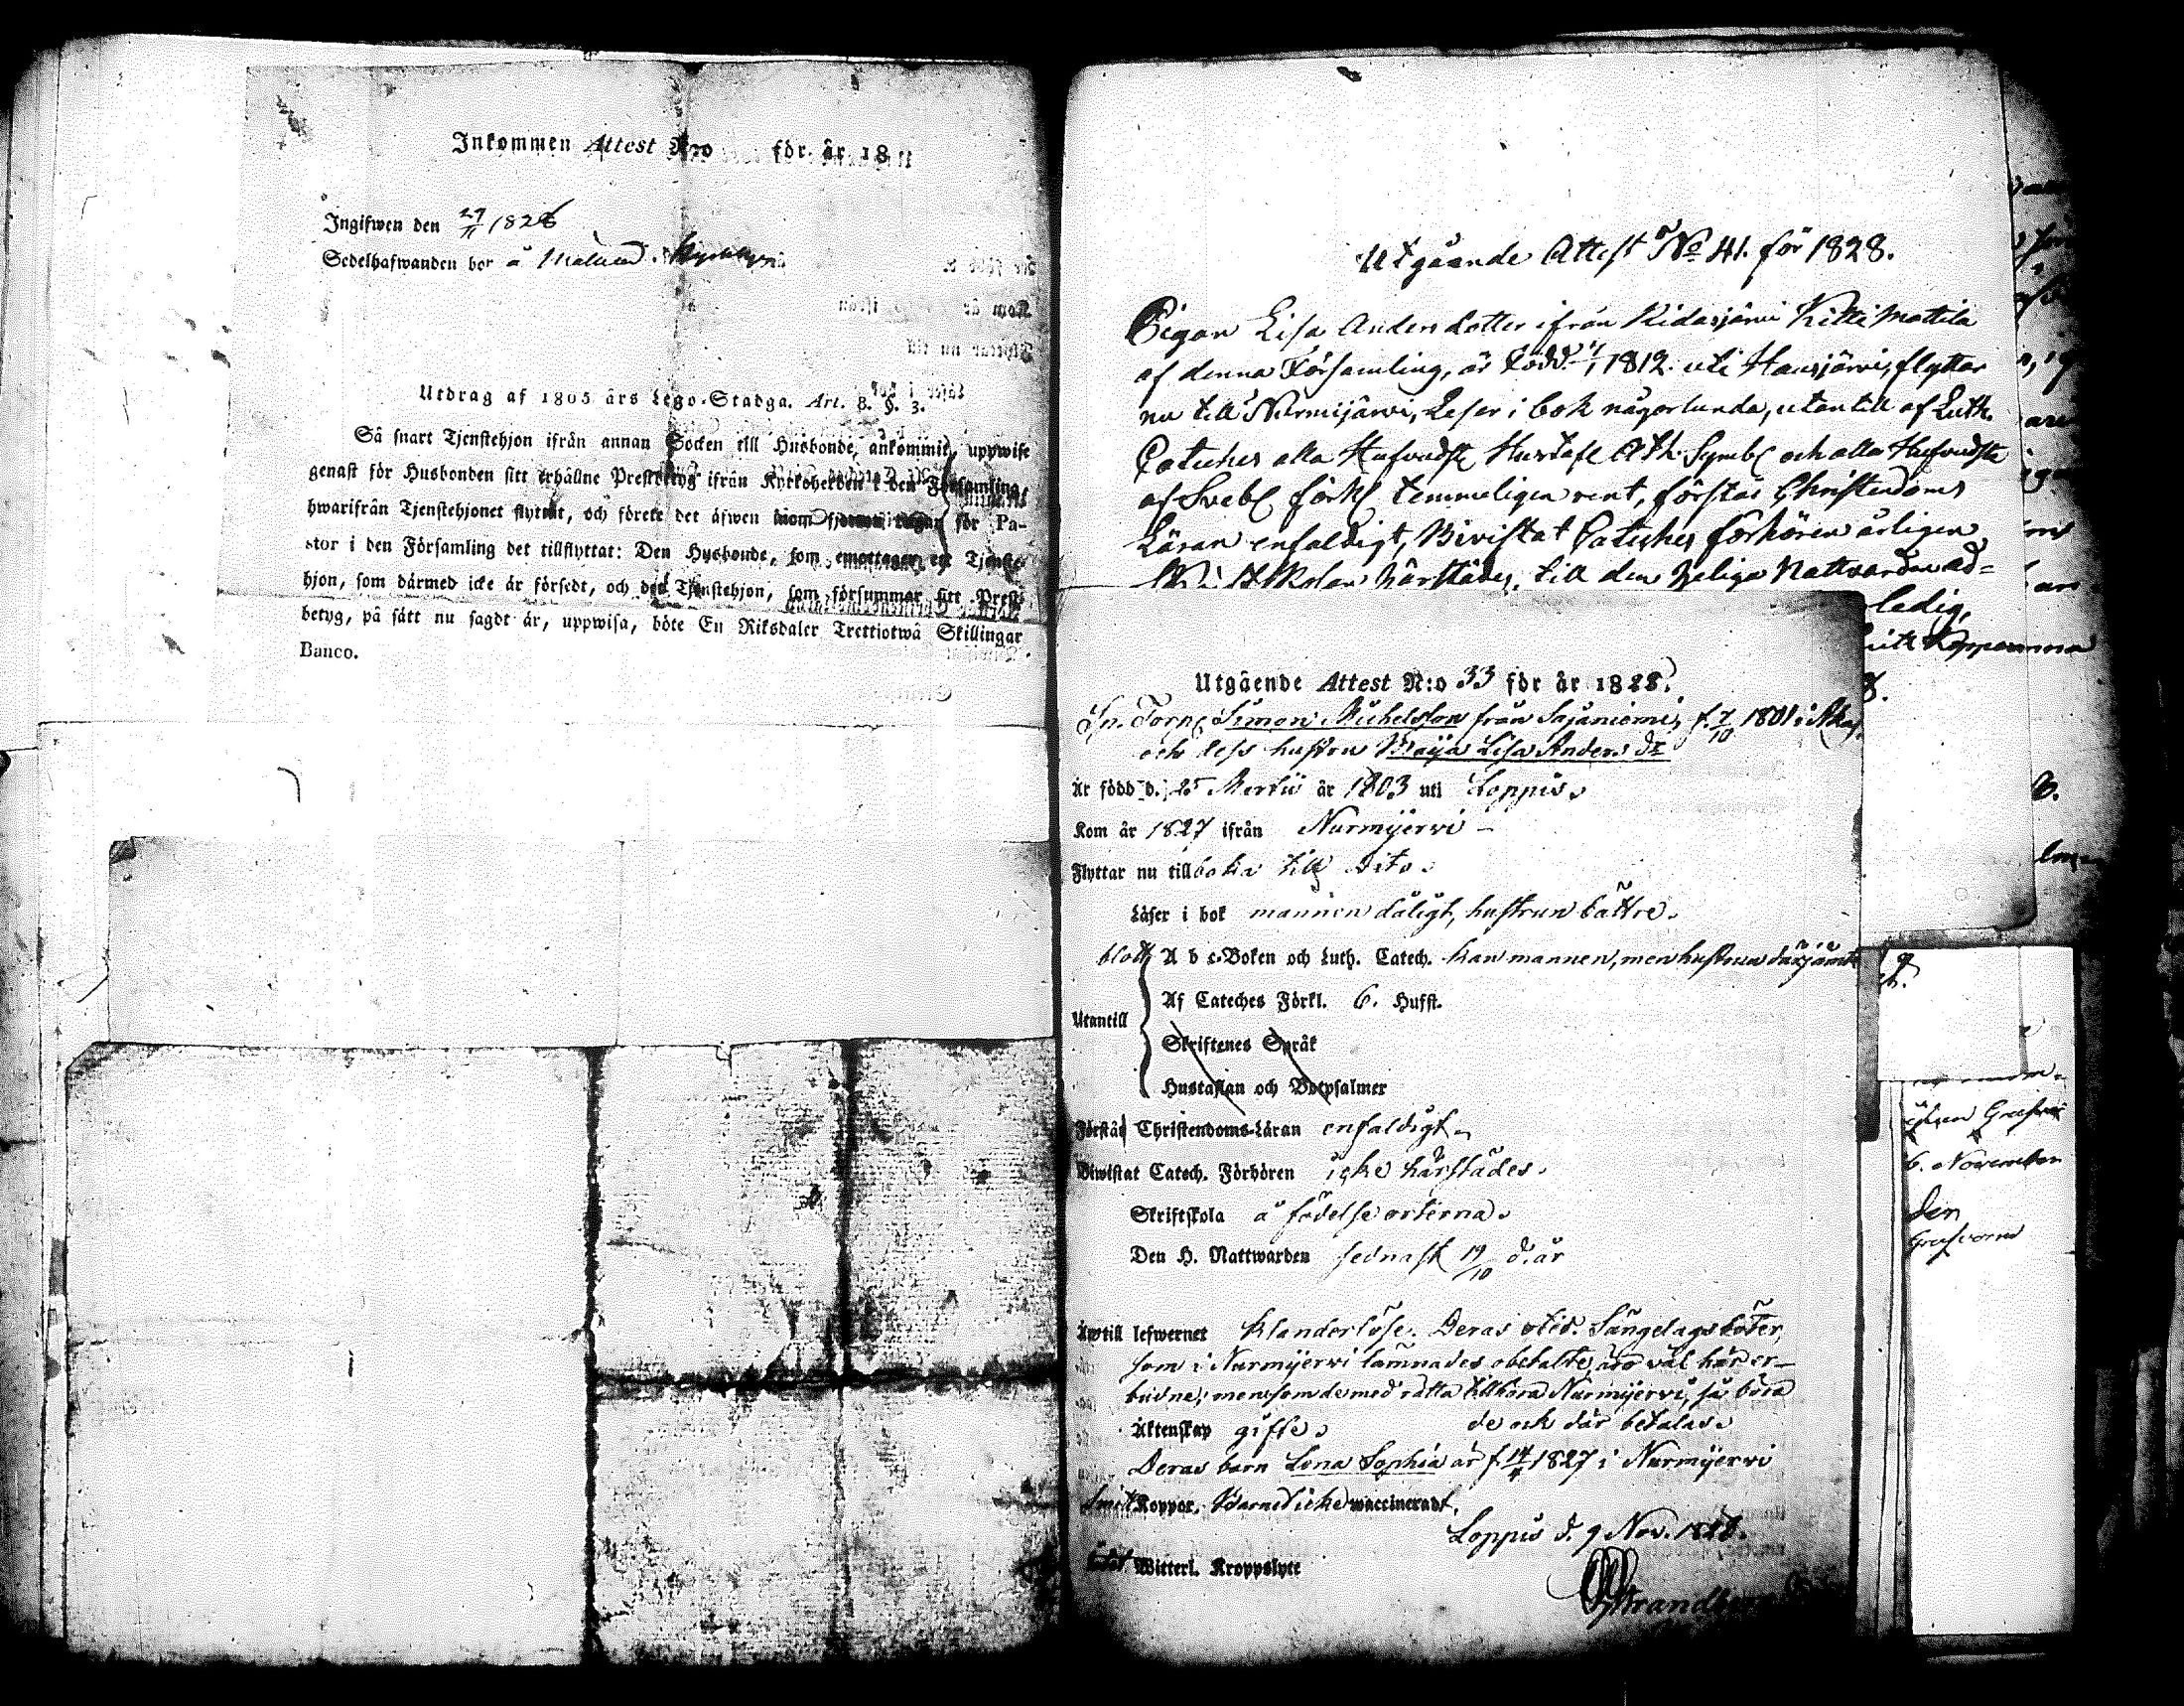 Inkommen Attest N:o för år 18
Ingifwen den 29/11 1828
Sedelhafwanden bor å
Utdrag af 1805 års Lego-Stadga. Art. 8. §. 3.
Så snart Tjenstehjon ifrån annan Socken till Husbonde, ankommit, uppwise
genast för Husbonden sitt erhållne Prestbetyg ifrån Kyrkoherden i den Församling,
hwarifrån Tjenstehjonet flyttat, och förete det äfwen inom fjorton dagar för Pa-
stor i den Församling det tillflyttat: Den Husbonde, som emottager ett Tjenste-
hjon, som därmed icke är försedt, och det Tjenstehjon, som försummar sitt Prest-
betyg, på sätt nu sagdt är, uppwisa, böte En Riksdaler Trettiotwå Skillingar
Banco.
Utgående Attest No 41. för 1828.
Pigan Lisa Anders dotter ifrån Kidasjärvi Kitti Mattila
af denna Församling, är född 1812 uti Hausjärvi, flyttar
nu till Nurmijärvi, Läser i bok någorlunda, utantill af Luth.
Cateches alla Hufvudst. Hustafl. Ath. Symb. och alla Hufvudste
af Sveb. förkl. temmeligen rent, förstår Christendoms
Läran enfaldigt, Bivistat Catiches förhören årligen,
härstädes, till den heliga Nattvarden ad=
ledig,
Koppor
Utgående Attest N:o 33 för år 1828.
Sn. Torp. Simon Michelsson från Sajaniemi, f. 7/10 1801 i
och dess hustru Maija Lisa Anders dr
Är född d. 25 Martii år 1803 uti Loppis.
Kom år 1827 ifrån Nurmijerwi –
Flyttar nu tillbaka till dito.
Läser i bok mannen dåligt, hustrun bättre.
blott A b c-Boken och Luth. Catech. kan mannen, men hustrun därjämte
Af Cateches Förkl. 6. Hufst.
Utantill
Skriftenes Språk
Hustaflan och Botpsalmer
Förstår Christendoms-Läran enfaldigt.
Biwistat Catech. Förhören icke härstädes.
Skriftskola å födelse orterna.
Den H. Nattwarden sednast 19/10 d. år
Är till lefwernet klanderlöse. Deras otid. Sängelagsböter,
som i Nurmijerwi lämnades obetalte, äro väl här er-
budne; men som de med rätta tillhöra Nurmijerwi, så böra
de ock där betalas.
Äktenskap gifte.
Deras barn Lena Sophia är f. 1827 i Nurmijerwi
Koppor. Barnet icke waccineradt.
Loppis d. 9 Nov. 1828.
Witterl. Kroppslyte
6. November
den